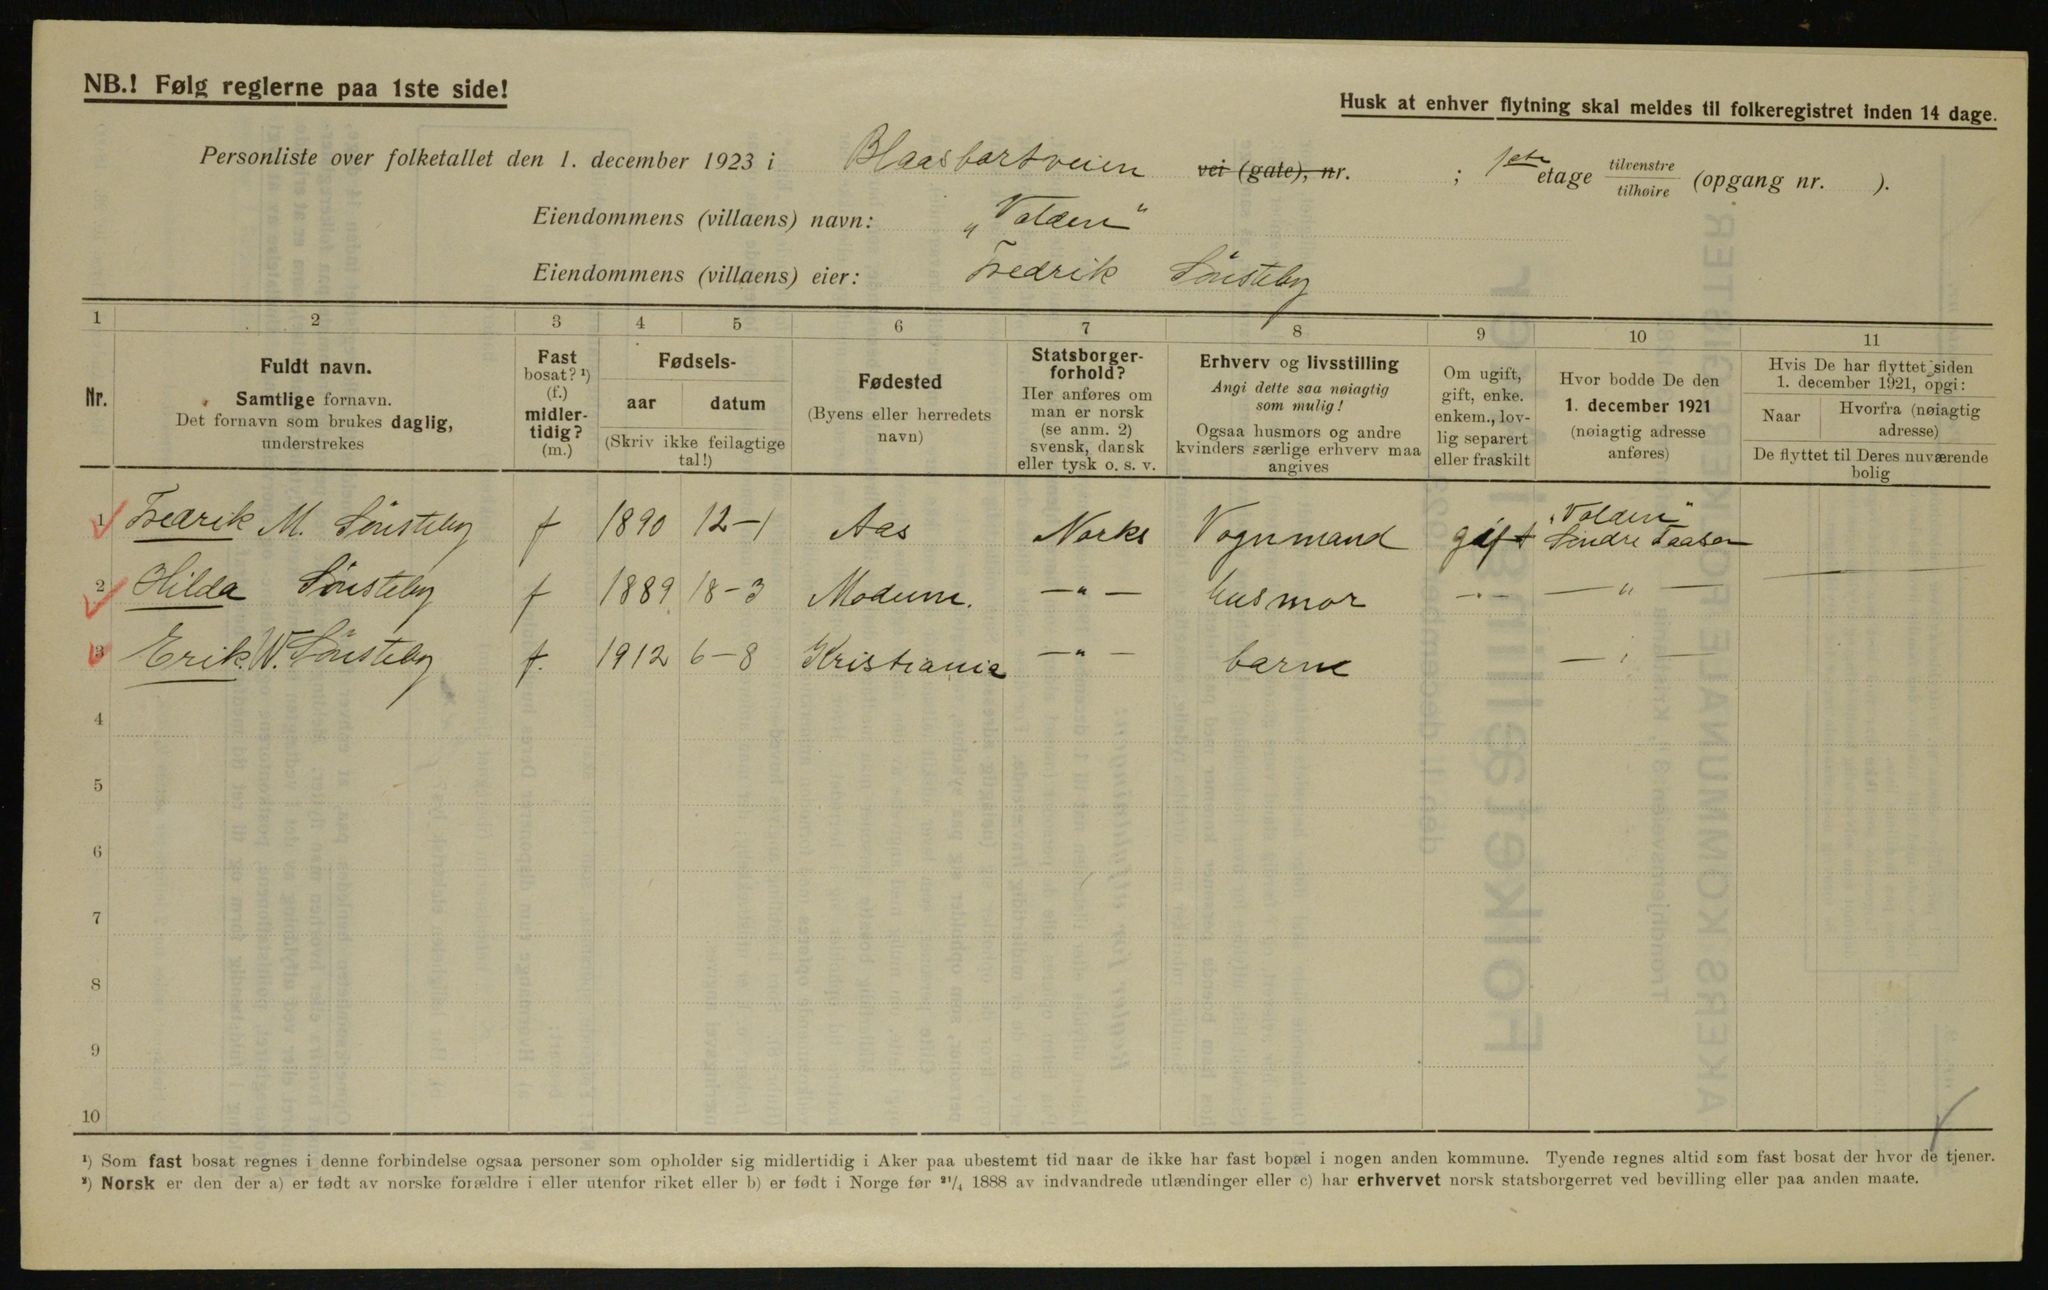 NB.! Følg reglerne paa 1ste side!
Husk at enhver flytning skal meldes til folkeregistret inden 14 dage.
Personliste over folketallet den 1. december 1923 i Blaasbortveien vei (gate), nr. ; 1ste etage tilvenstre tilhøire (opgang nr. ).
Eiendommens (villaens) navn: "Volden"
Eiendommens (villaens) eier: Fredrik Sönsteby
1 2 3 4 5 6 7 8 9 10 11
Nr.
Fuldt navn.
Samtlige fornavn.
Det fornavn som brukes daglig,
understrekes
Fast
bosat? ¹)
(f.)
midler-
tidig?
(m.)
Fødsels-
aar datum
(Skriv ikke feilagtige
tal!)
Fødested
(Byens eller herredets
navn)
Statsborger-
forhold?
Her anføres om
man er norsk
(se anm. 2)
svensk, dansk
eller tysk o. s. v.
Erhverv og livsstilling
Angi dette saa nøiagtig
som mulig!
Ogsaa husmors og andre
kvinders særlige erhverv maa
angives
Om ugift,
gift, enke.
enkem., lov-
lig separert
eller fraskilt
Hvor bodde De den
1. december 1921
(nøiagtig adresse
anføres)
Hvis De har flyttet siden
1. december 1921, opgi:
Naar Hvorfra (nøiagtig
adresse)
De flyttet til Deres nuværende
bolig
1 Fredrik M. Sönsteby f 1890 12-1 Aas Norks Vognmand gift "Volden" Söndre Taasen
2 Hilda Sönsteby f 1889 18-3 Modum. —"— husmor —"— —"—
3 Erik W. Sönsteby f. 1912 6-8 Kristiania —"— barn —"—
4
5
6
7
8
9
10
¹) Som fast bosat regnes i denne forbindelse ogsaa personer som opholder sig midlertidig i Aker paa ubestemt tid naar de ikke har fast bopæl i nogen anden kommune. Tyende regnes altid som fast bosat der hvor de tjener.
²) Norsk er den der a) er født av norske forældre i eller utenfor riket eller b) er født i Norge før ²¹/₄ 1888 av indvandrede utlændinger eller c) har erhvervet norsk statsborgerret ved bevilling eller paa anden maate.